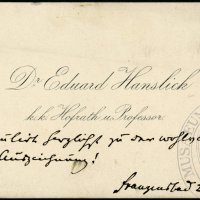 Dr Eduard Hanslick
k. k. Hofrath u. Professor.
herzlichst zu der
Auszeichnung!
Franzensbad 2
MUSEUM